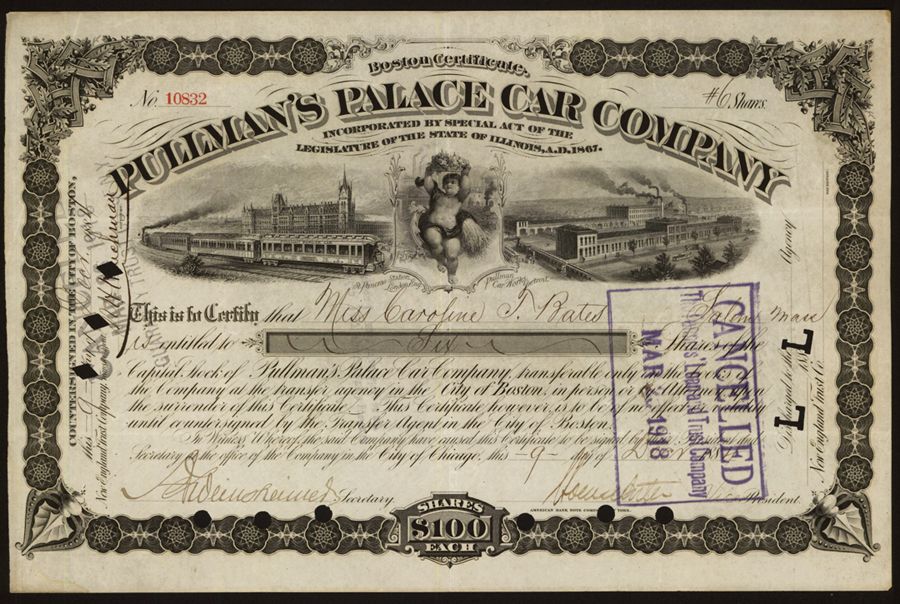 Boston Certificate.
No. 10832
#6 Shares.
PULLMAN'S PALACE CAR COMPANY
INCORPORATED BY SPECIAL ACT OF THE
LEGISLATURE OF THE STATE OF ILLINOIS, A.D. 1867.
St. Pancras Station, London, Eng.
Pullman Car Works, Detroit.
This is to Certify that Miss Caroline T. Bates Salem Mass
is entitled to Six Shares of the
Capital Stock of Pullman's Palace Car Company, transferable only on the
the Company at the transfer agency in the City of Boston, in person or by
the surrender of this Certificate. This Certificate, however, is to be of no effect
until countersigned by the Transfer Agent in the City of Boston.
In Witness Whereof, the said Company have caused this Certificate to be signed by
Secretary at the office of the Company in the City of Chicago, this 9 day of
Secretary.
President.
AMERICAN BANK NOTE COMPANY
SHARES
$100
EACH
COUNTERSIGNED IN THE CITY OF BOSTON,
this 9
New England Trust Company,
Agency
New England Trust Co.
CANCELLED
Loan and Trust Company
MAR 1918
L L